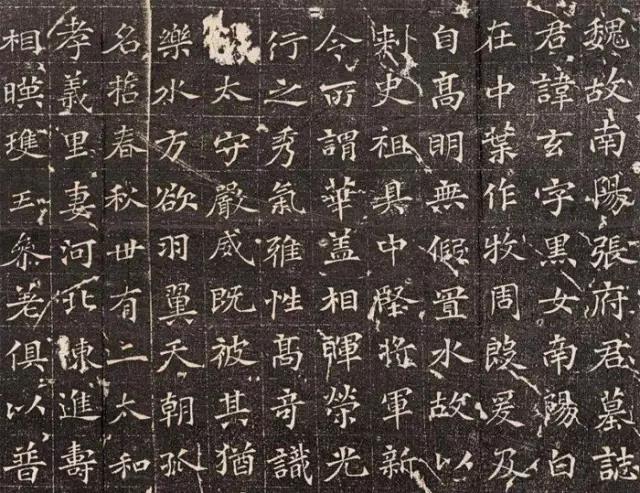 魏故南陽張府君墓誌
君諱玄字黑女南陽白
在中葉作牧周殷爰及
自高明無假置水故以
刺史祖具中堅將軍新
今所謂華盖相暉榮光
行之秀氣雅性高奇識
太守嚴威既被其猶
樂水方欲羽翼天朝抓
名春秋世有二太和
孝義里妻河北陳進壽
相暎瓊玉參差俱以普